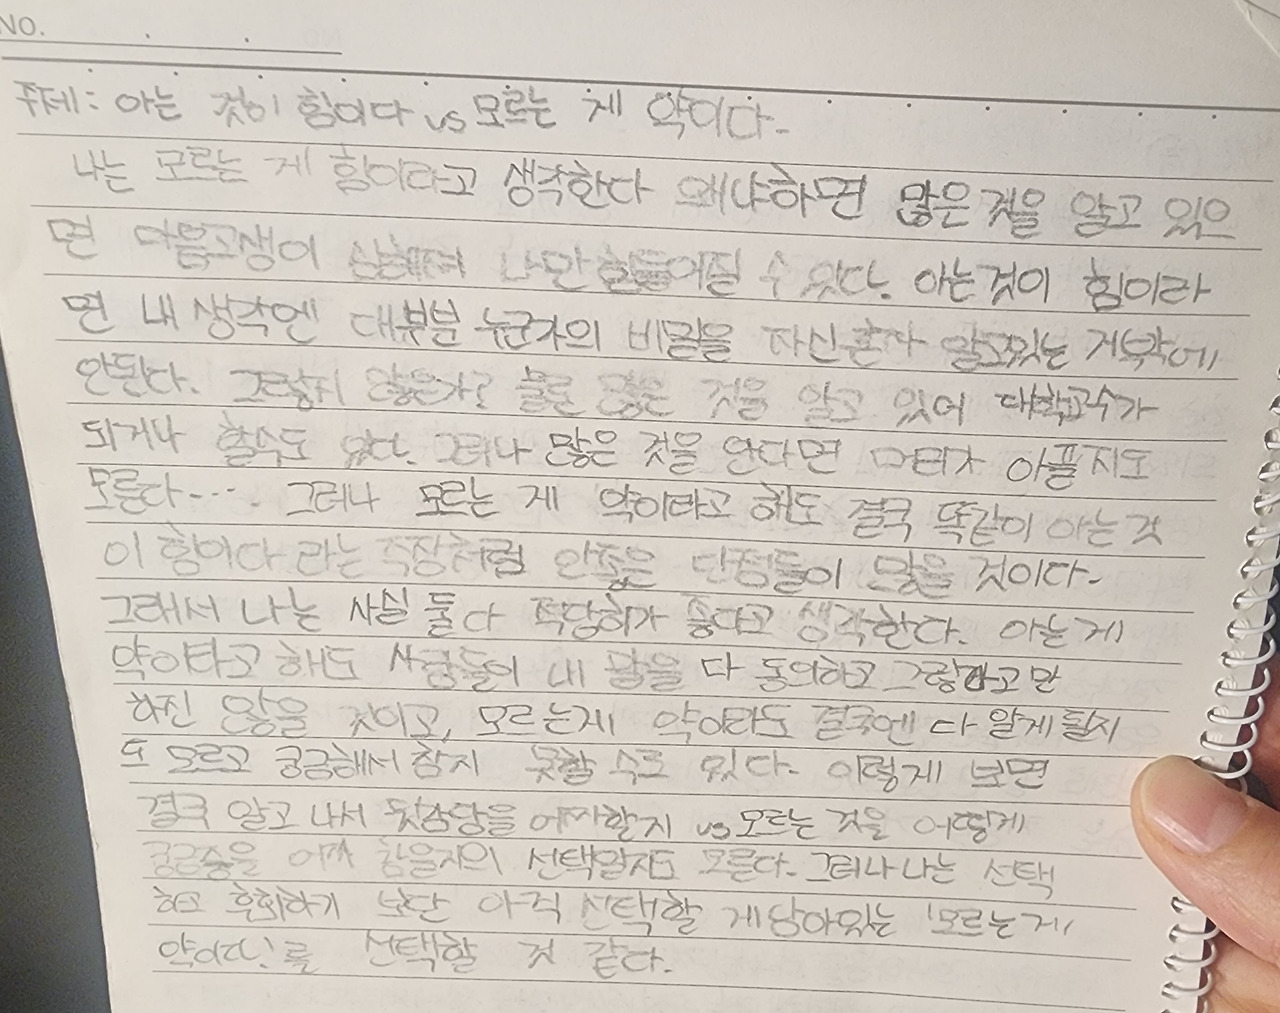 NO.
주제: 아는 것이 힘이다 vs 모르는 게 약이다.
나는 모르는 게 힘이라고 생각한다 왜냐하면 많은 것을 알고 있으
면 마음고생이 심해져 나만 힘들어질 수 있다. 아는 것이 힘이라
면 내 생각엔 대부분 누군가의 비밀을 자신 혼자 알고있는 거밖에
안된다. 그렇지 않은가? 물론 많은 것을 알고 있어 대학교수가
되거나 할수도 있다. 그러나 많은 것을 안다면 머리가 아플지도
모른다.... 그러나 모르는 게 약이라고 해도 결국 똑같이 아는 것
이 힘이다 라는 주장처럼 안좋은 단점들이 많을 것이다.
그래서 나는 사실 둘 다 적당히가 좋다고 생각한다. 아는게
약이라고 해도 사람들이 내 말을 다 동의하고 그렇다고만
하진 않을 것이고, 모르는게 약이라도 결국엔 다 알게 될지
도 모르고 궁금해서 참지 못할 수도 있다. 이렇게 보면
결국 알고 나서 뒷감당을 어찌할지 vs 모르는 것을 어떻게
궁금증을 어찌 참을지의 선택일지도 모른다. 그러나 나는 선택
하고 후회하기 보단 아직 선택할 게 남아있는 '모르는게
약이다'를 선택할 것 같다.